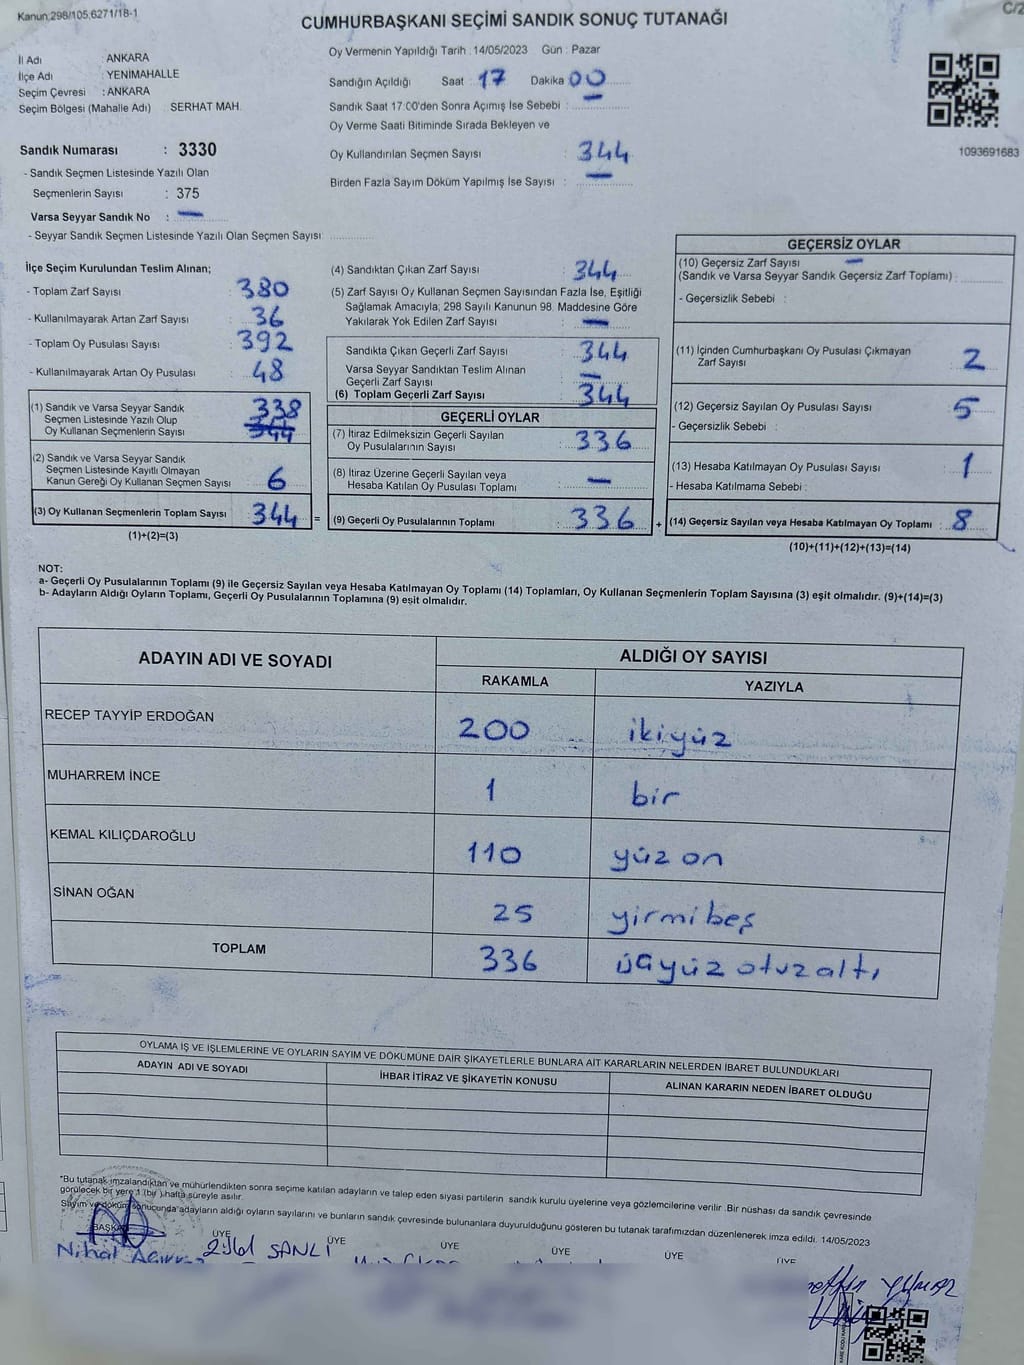 Kanun:298/105,6271/18-1
C/2
CUMHURBAŞKANI SEÇİMİ SANDIK SONUÇ TUTANAĞI
İl Adı : ANKARA
İlçe Adı : YENİMAHALLE
Seçim Çevresi : ANKARA
Seçim Bölgesi (Mahalle Adı) SERHAT MAH.
Oy Vermenin Yapıldığı Tarih : 14/05/2023 Gün : Pazar
Sandığın Açıldığı Saat 17 Dakika 00
Sandık Saat 17:00'den Sonra Açımış İse Sebebi : —
Oy Verme Saati Bitiminde Sırada Bekleyen ve
Oy Kullandırılan Seçmen Sayısı : 344
Birden Fazla Sayım Döküm Yapılmış İse Sayısı : —
1093691683
Sandık Numarası : 3330
- Sandık Seçmen Listesinde Yazılı Olan
Seçmenlerin Sayısı : 375
Varsa Seyyar Sandık No : —
- Seyyar Sandık Seçmen Listesinde Yazılı Olan Seçmen Sayısı:
İlçe Seçim Kurulundan Teslim Alınan;
- Toplam Zarf Sayısı : 380
- Kullanılmayarak Artan Zarf Sayısı : 36
- Toplam Oy Pusulası Sayısı : 392
- Kullanılmayarak Artan Oy Pusulası : 48
(1) Sandık ve Varsa Seyyar Sandık
Seçmen Listesinde Yazılı Olup
Oy Kullanan Seçmenlerin Sayısı : 338
344
(2) Sandık ve Varsa Seyyar Sandık
Seçmen Listesinde Kayıtlı Olmayan
Kanun Gereği Oy Kullanan Seçmen Sayısı : 6
(3) Oy Kullanan Seçmenlerin Toplam Sayısı : 344 =
(1)+(2)=(3)
(4) Sandıktan Çıkan Zarf Sayısı : 344
(5) Zarf Sayısı Oy Kullanan Seçmen Sayısından Fazla İse, Eşitliği
Sağlamak Amacıyla; 298 Sayılı Kanunun 98. Maddesine Göre
Yakılarak Yok Edilen Zarf Sayısı : —
Sandıkta Çıkan Geçerli Zarf Sayısı : 344
Varsa Seyyar Sandıktan Teslim Alınan
Geçerli Zarf Sayısı : —
(6) Toplam Geçerli Zarf Sayısı : 344
GEÇERLİ OYLAR
(7) İtiraz Edilmeksizin Geçerli Sayılan
Oy Pusulalarının Sayısı : 336
(8) İtiraz Üzerine Geçerli Sayılan veya
Hesaba Katılan Oy Pusulası Toplamı : —
(9) Geçerli Oy Pusulalarının Toplamı : 336 +
GEÇERSİZ OYLAR
(10) Geçersiz Zarf Sayısı —
(Sandık ve Varsa Seyyar Sandık Geçersiz Zarf Toplamı) :
- Geçersizlik Sebebi :
(11) İçinden Cumhurbaşkanı Oy Pusulası Çıkmayan
Zarf Sayısı : 2
(12) Geçersiz Sayılan Oy Pusulası Sayısı : 5
- Geçersizlik Sebebi :
(13) Hesaba Katılmayan Oy Pusulası Sayısı : 1
- Hesaba Katılmama Sebebi :
(14) Geçersiz Sayılan veya Hesaba Katılmayan Oy Toplamı : 8
(10)+(11)+(12)+(13)=(14)
NOT:
a- Geçerli Oy Pusulalarının Toplamı (9) ile Geçersiz Sayılan veya Hesaba Katılmayan Oy Toplamı (14) Toplamları, Oy Kullanan Seçmenlerin Toplam Sayısına (3) eşit olmalıdır. (9)+(14)=(3)
b- Adayların Aldığı Oyların Toplamı, Geçerli Oy Pusulalarının Toplamına (9) eşit olmalıdır.
ADAYIN ADI VE SOYADI ALDIĞI OY SAYISI
RAKAMLA YAZIYLA
RECEP TAYYİP ERDOĞAN 200 ikiyüz
MUHARREM İNCE 1 bir
KEMAL KILIÇDAROĞLU 110 yüz on
SİNAN OĞAN 25 yirmibeş
TOPLAM 336 üçyüz otuzaltı
OYLAMA İŞ VE İŞLEMLERİNE VE OYLARIN SAYIM VE DÖKÜMÜNE DAİR ŞİKAYETLERLE BUNLARA AİT KARARLARIN NELERDEN İBARET BULUNDUKLARI
ADAYIN ADI VE SOYADI İHBAR İTİRAZ VE ŞİKAYETİN KONUSU ALINAN KARARIN NEDEN İBARET OLDUĞU
*Bu tutanak imzalandıktan ve mühürlendikten sonra seçime katılan adayların ve talep eden siyasi partilerin sandık kurulu üyelerine veya gözlemcilerine verilir. Bir nüshası da sandık çevresinde
görülecek bir yere 1 (bir) hafta süreyle asılır.
Sayım ve döküm sonucunda adayların aldığı oyların sayılarını ve bunların sandık çevresinde bulunanlara duyurulduğunu gösteren bu tutanak tarafımızdan düzenlenerek imza edildi. 14/05/2023
BAŞKAN ÜYE ÜYE ÜYE ÜYE ÜYE ÜYE
Nihal SANLI
YILMAZ